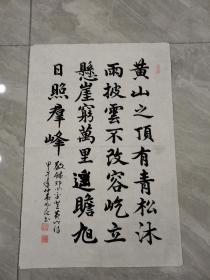 黄山之頂有青松沐
雨披雲不改容屹立
懸崖窮萬里遥瞻旭
日照群峰